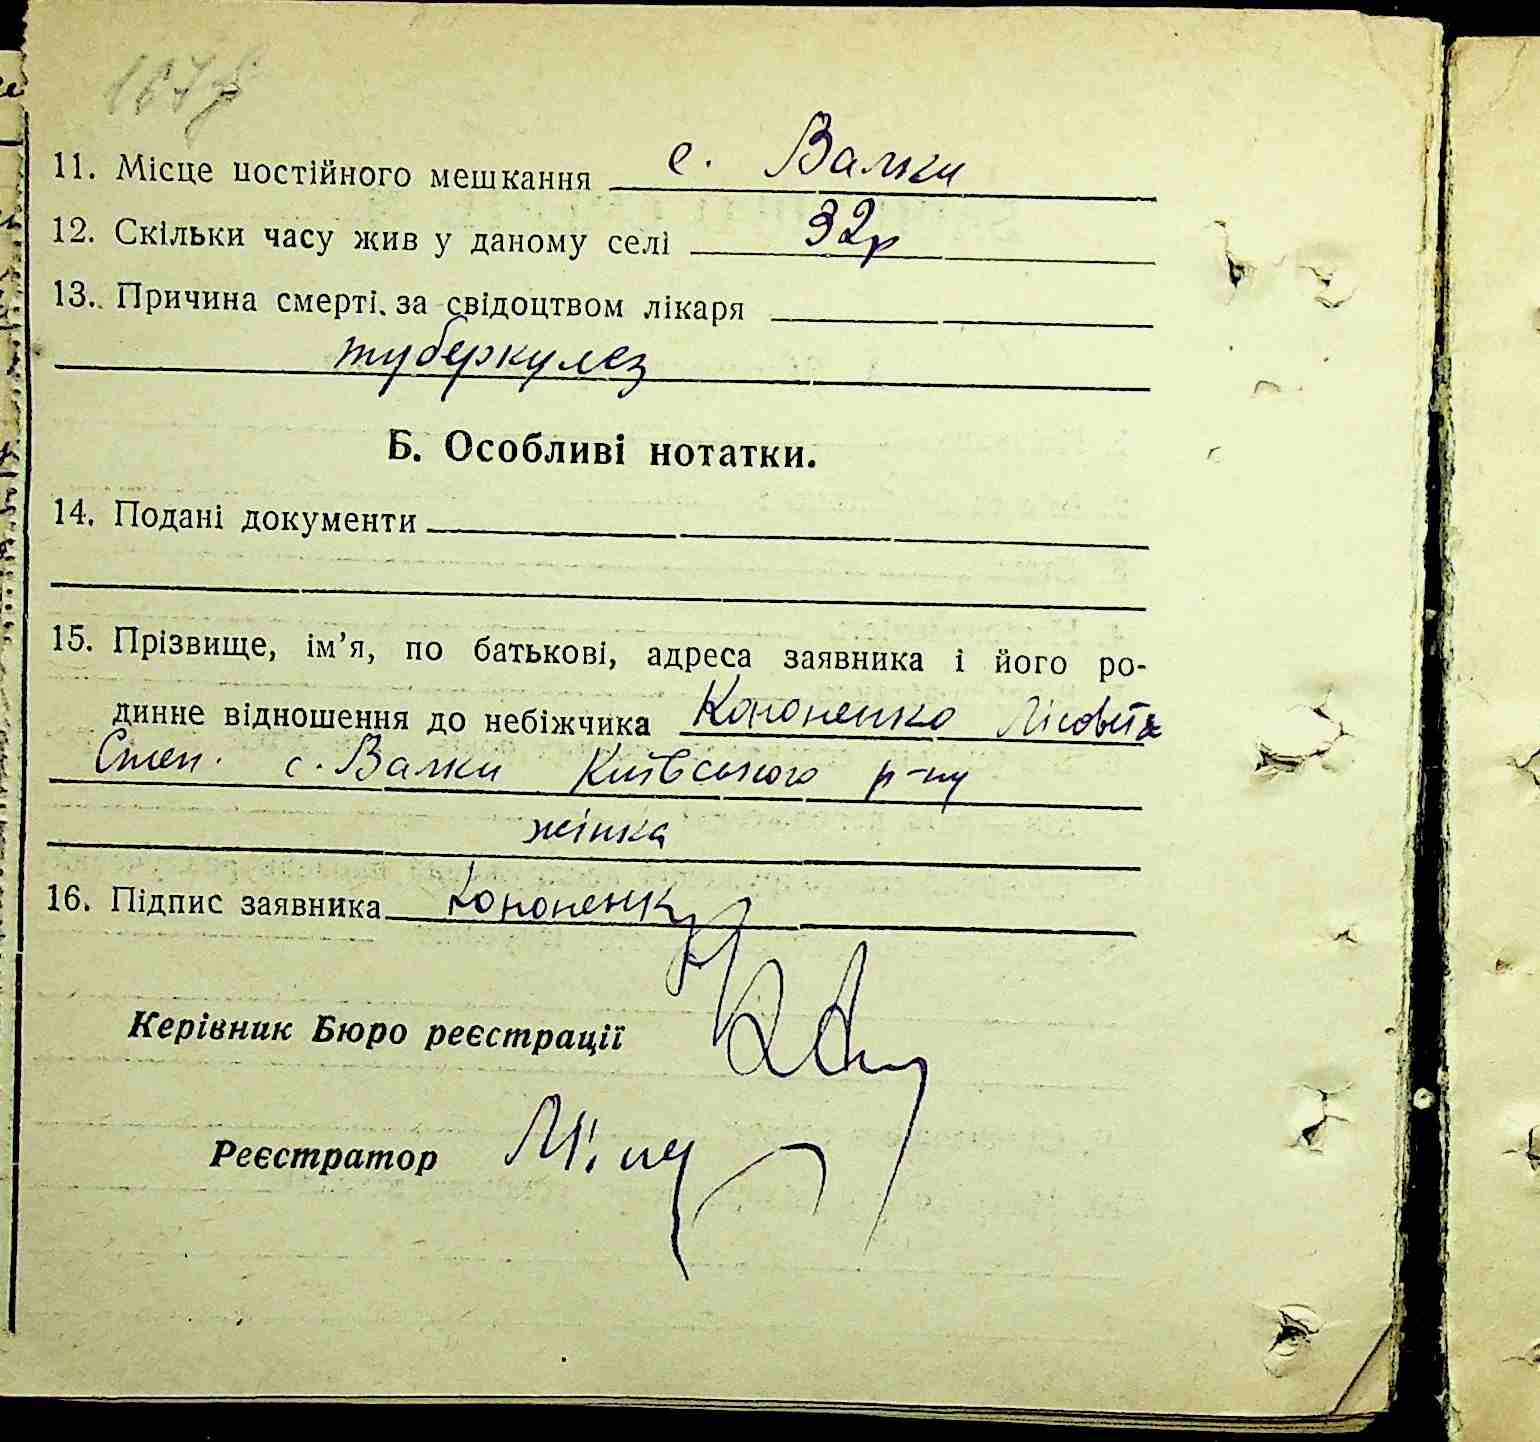 11. Місце постійного мешкання с. Валки
12. Скільки часу жив у даному селі 32р
13. Причина смерті за свідоцтвом лікаря
туберкулез
Б. Особливі нотатки.
14. Подані документи
15. Прізвище, ім’я, по батькові, адреса заявника і його ро-
динне відношення до небіжчика Кононенко Лісовета
Степ. с. Валки Київського р-ну
жінка
16. Підпис заявника Кононенко
Керівник Бюро реєстрації
Реєстратор